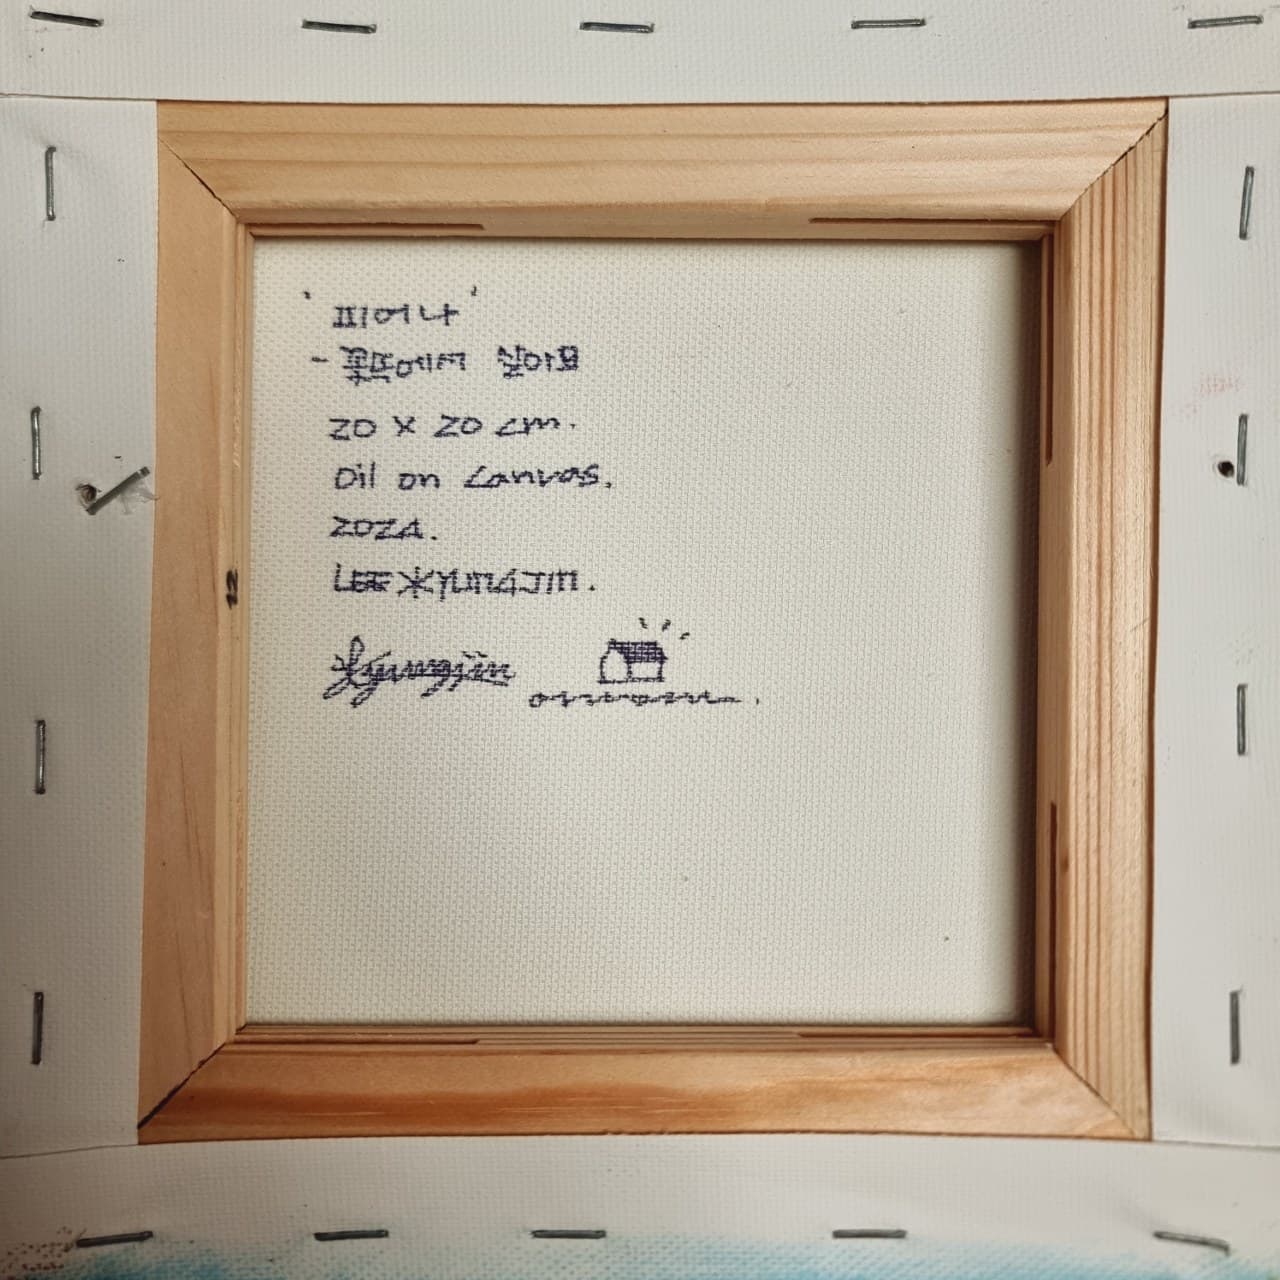 '피어나'
- 꽃뜨에서 살아요
20 X 20 cm.
Oil on Canvas.
2024.
LEE KYUNGJIN.
Kyungjin
12